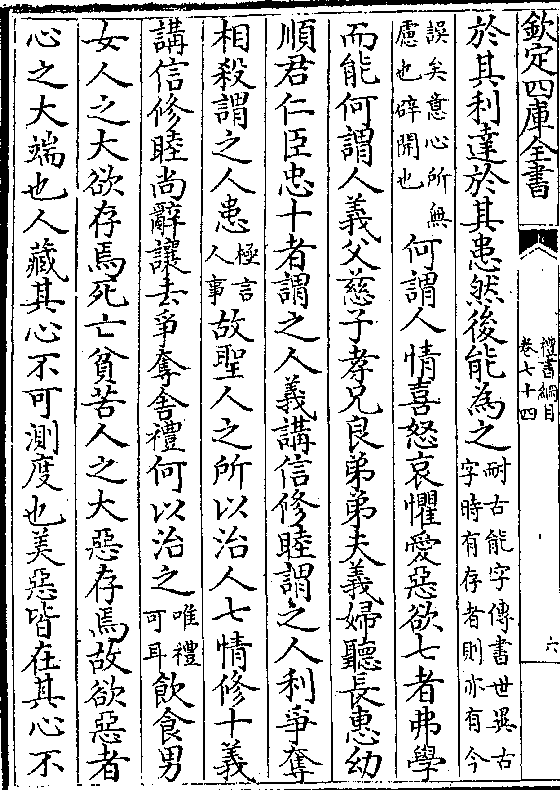 欽定四庫全書
禮書綱目
卷七十四
六
於其利達於其患然後能為之耐古能字傳書世異古字時有存者則亦有今
誤矣意心所無慮也辟開也何謂人情喜怒哀懼愛惡欲七者弗學
而能何謂人義父慈子孝兄良弟弟夫義婦聽長惠幼
順君仁臣忠十者謂之人義講信修睦謂之人利爭奪
相殺謂之人患極言人事故聖人之所以治人七情修十義
講信修睦尚辭讓去爭奪舍禮何以治之唯禮可耳飲食男
女人之大欲存焉死亡貧苦人之大惡存焉故欲惡者
心之大端也人藏其心不可測度也美惡皆在其心不